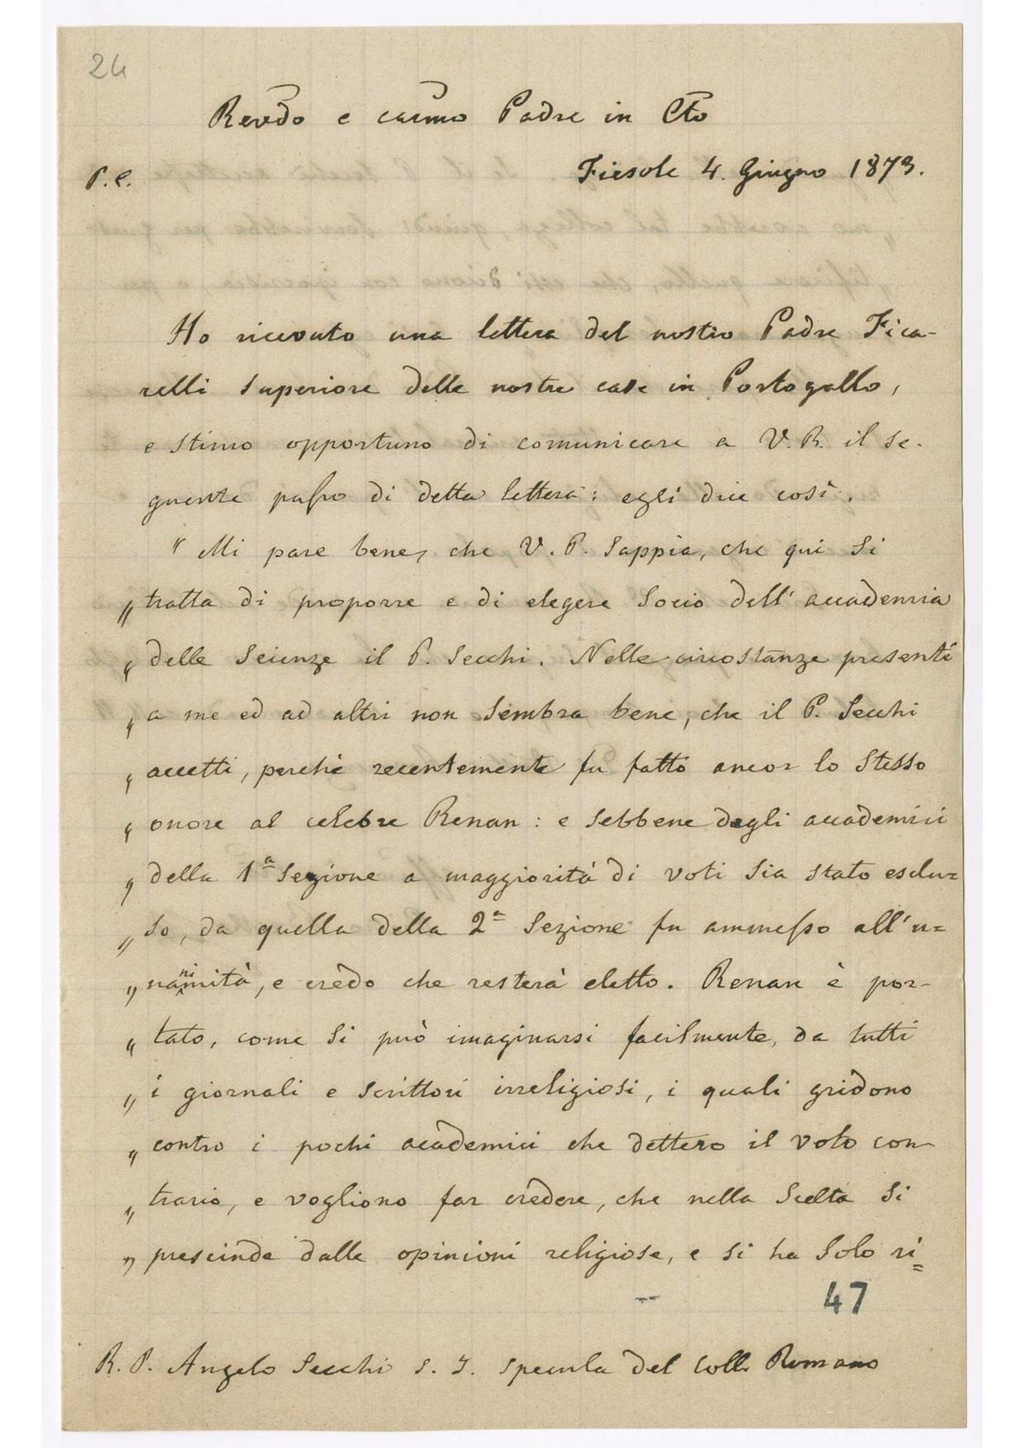 24
Revdo e carmo Padre in Cto
P. C. Fiesole 4. Giugno 1873.
Ho ricevuto una lettera del nostro Padre Fica-
relli Superiore delle nostre case in Portogallo,
e stimo opportuno di comunicare a V. R. il se-
guente passo di detta lettera: egli dice così.
" Mi pare bene, che V. P. sappia, che qui si
" tratta di proporre e di elegere Socio dell' accademia
" delle Scienze il P. Secchi. Nelle circostanze presenti
" a me ed ad altri non sembra bene, che il P. Secchi
" accetti, perchè recentemente fu fatto ancor lo stesso
" onore al celebre Renan: e sebbene dagli accademici
" della 1ª Sezione a maggiorità di voti sia stato esclu=
" so, da quella della 2ª Sezione fu ammesso all'u=
" nanimità, e credo che resterà eletto. Renan è por-
" tato, come si può imaginarsi facilmente, da tutti
" i giornali e scrittori irreligiosi, i quali gridono
" contro i pochi academici che dettero il voto con-
" trario, e vogliono far credere, che nella scelta si
" prescinde dalle opinioni religiose, e si ha solo ri=
47
R. P. Angelo Secchi S. J. Specula del Coll. Romano